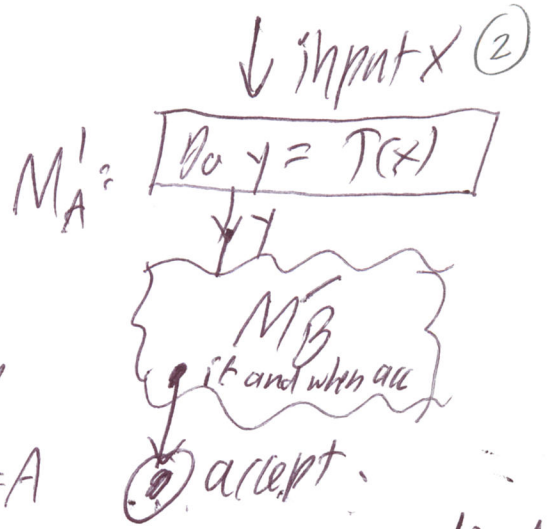 input x ②
M'A: Do y = T(x)
y
MB
if and when acc
=A accept.